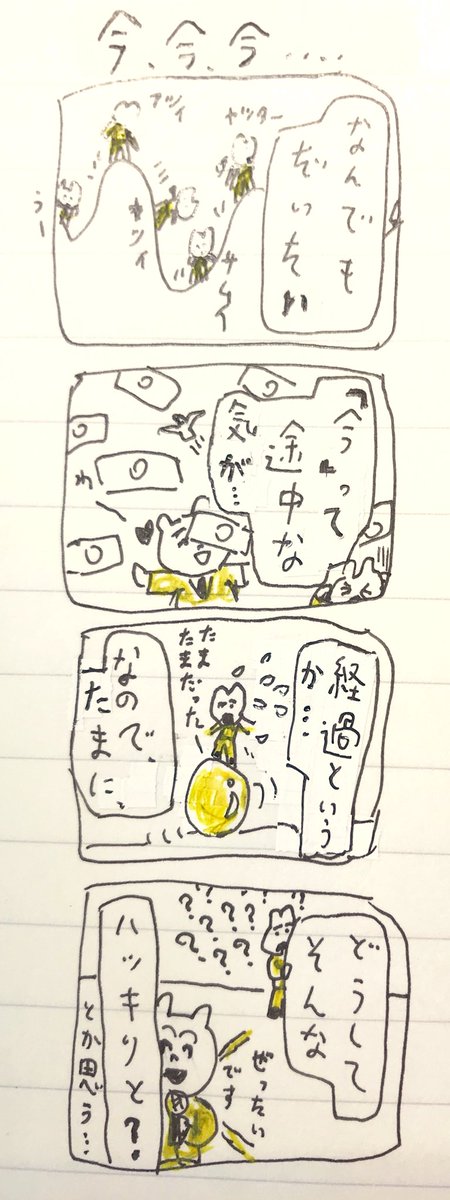 今、今、今‥‥‥
なんでも
だいたい
アツイ
ヤッター
キツイ
サムイ
うー
今って
途中な
気が…
わ
経過という
か…
たま
たまだった
なので、
たまに、
どうして
そんな
？？？？？？？？？？？？
ぜったい
です
ハッキリと？
とか思う…